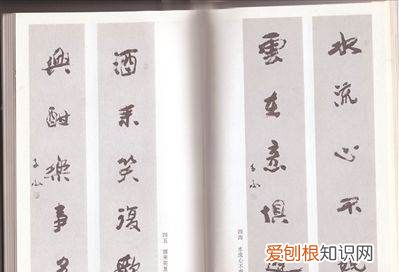 水流心不
雲在意俱
四四 水流心不
酒來笑復歌
興酣樂事多
四五 酒來笑復
爱刨根知识网